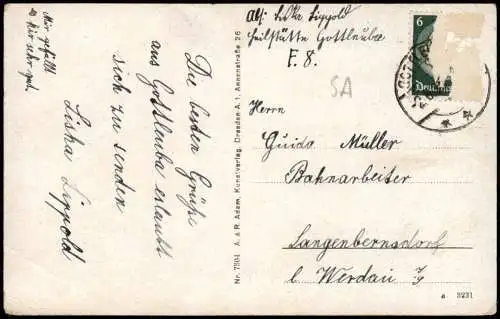 Mir gefällt
es hier sehr gut.
Die besten Grüße
aus Gottleuba erlaubt
sich zu senden
Liska Lippold
Nr. 7304 A. & R. Adam, Kunstverlag, Dresden-A. 1, Annenstraße 26
Abs: Liska Lippold
Heilstätte Gottleuba
F. 8.
SA
6
Deutsches
Herrn
Guido Müller
Bahnarbeiter
Langenbernsdorf
b Werdau i/S
a 5231